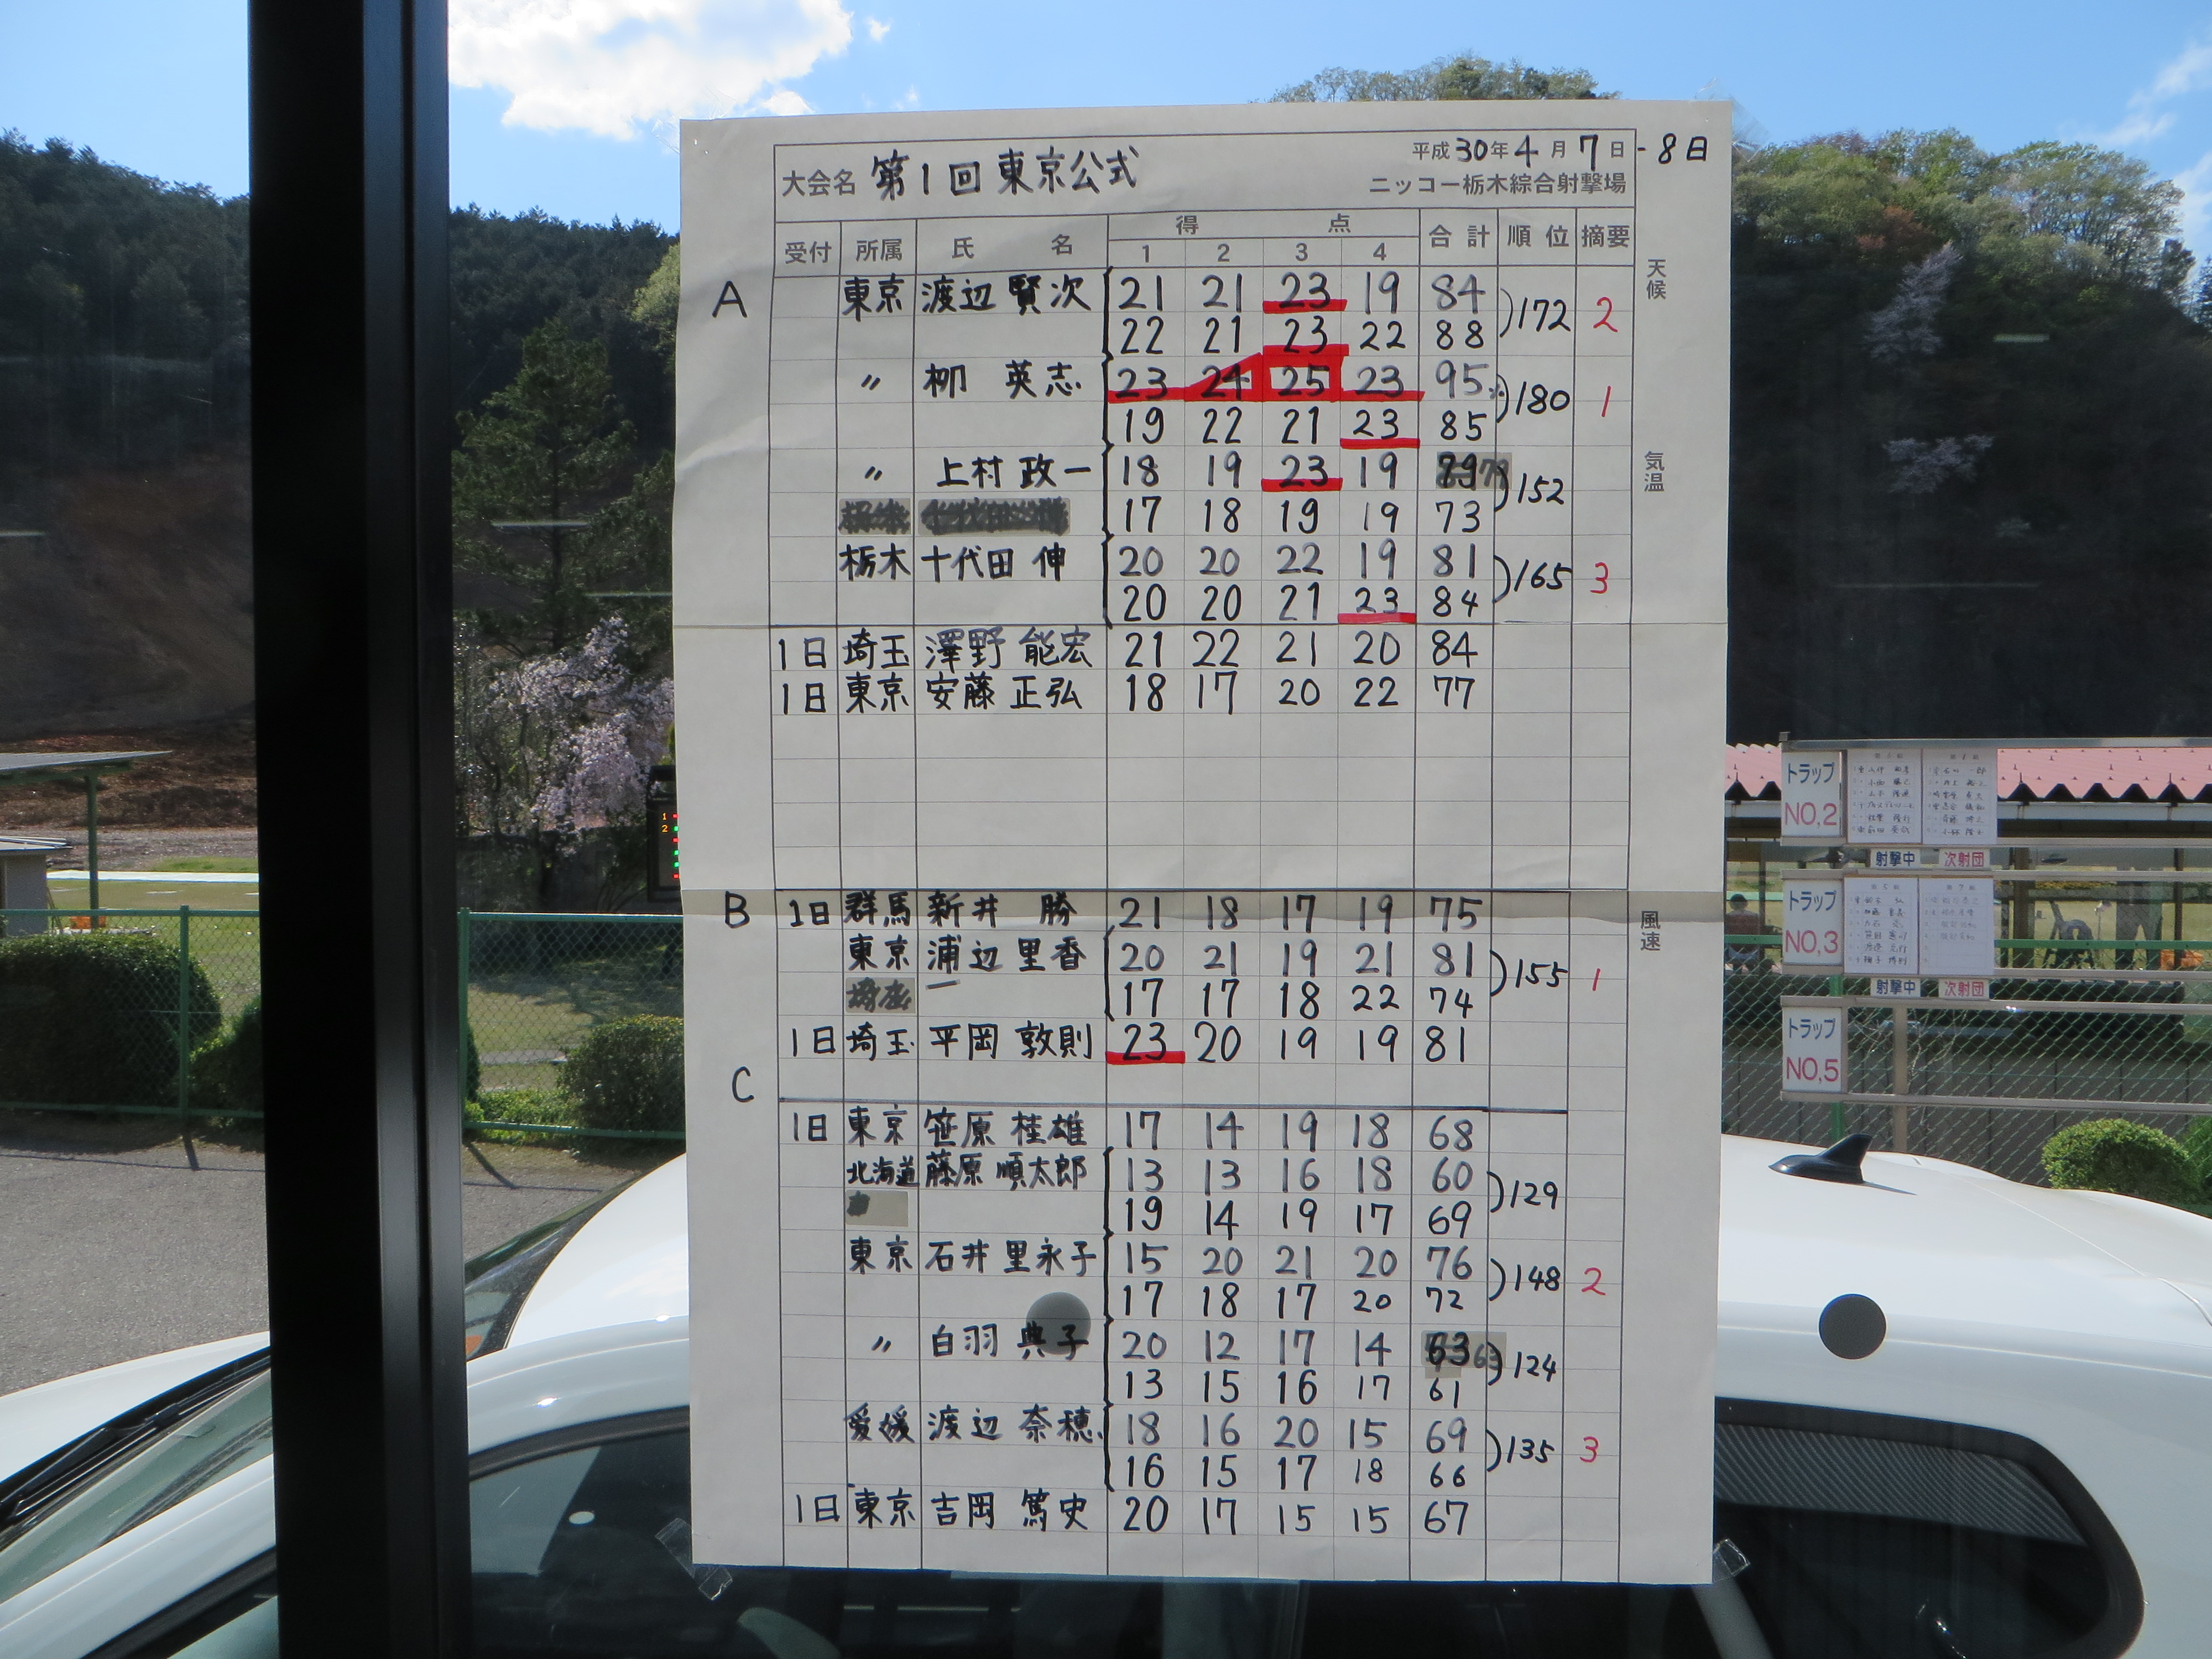 大会名 第1回 東京公式 平成30年4月7日-8日
ニッコー栃木綜合射撃場
受付 所属 氏名 得点 1 2 3 4 合計 順位 摘要
天候
A 東京 渡辺 賢次 21 21 23 19 84 172 2
22 21 23 22 88
〃 柳 英志 23 24 25 23 95 180 1
19 22 21 23 85
気温
〃 上村 政一 18 19 23 19 79 79 152
17 18 19 19 73
栃木 十代田 伸 20 20 22 19 81 165 3
20 20 21 23 84
1日 埼玉 澤野 能宏 21 22 21 20 84
1日 東京 安藤 正弘 18 17 20 22 77
B 1日 群馬 新井 勝 21 18 17 19 75
風速
東京 浦辺 里香 20 21 19 21 81 155 1
17 17 18 22 74
1日 埼玉 平岡 敦則 23 20 19 19 81
C
1日 東京 笹原 桂雄 17 14 19 18 68
北海道 藤原 順太郎 13 13 16 18 60 129
19 14 19 17 69
東京 石井 里永子 15 20 21 20 76 148 2
17 18 17 20 72
〃 白羽 典子 20 12 17 14 63 63 124
13 15 16 17 61
愛媛 渡辺 奈穂 18 16 20 15 69 135 3
16 15 17 18 66
1日 東京 吉岡 篤史 20 17 15 15 67
トラップ
NO,2
射撃中 次射団
トラップ
NO,3
射撃中 次射団
トラップ
NO,5
1
2